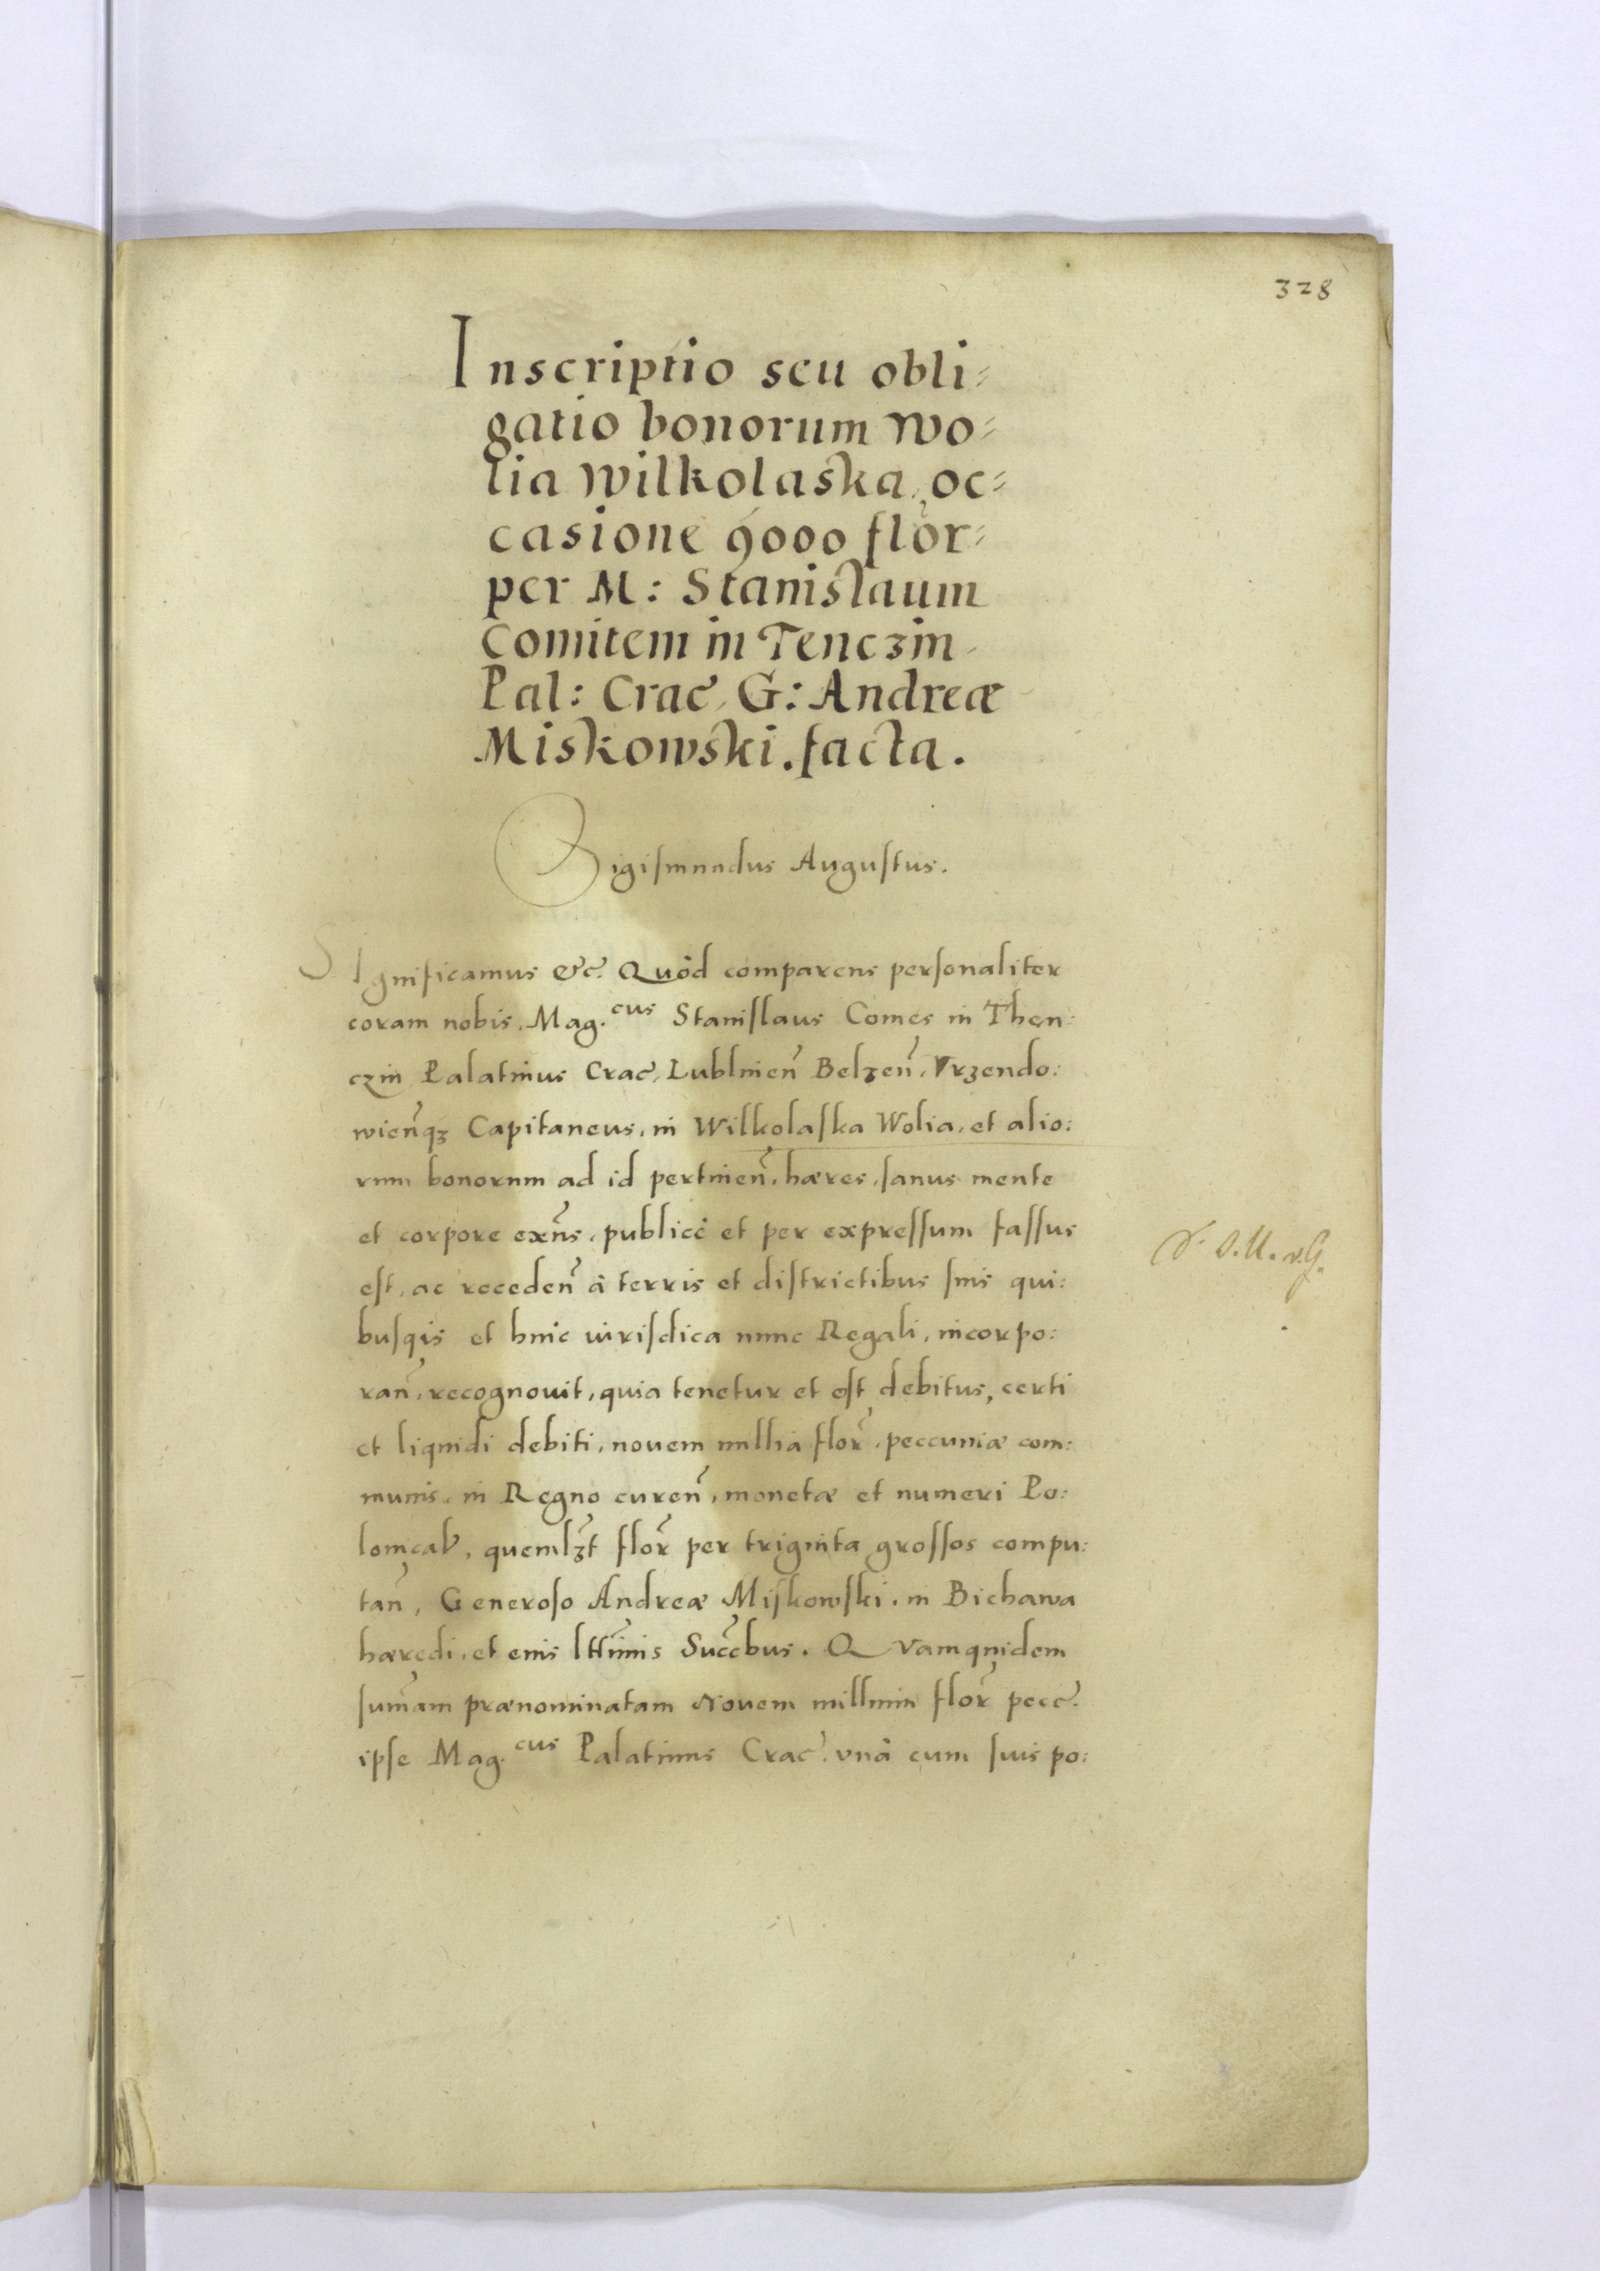 328
Inscriptio seu obli=
gatio bonorum wo=
lia wilkolaska, oc=
casione 9000 flor=
per M: Stanislaum
Comitem in Tenczin
Pal: Crac̃, G: Andreæ
Miskowski. facta.
Sigismundus Augustus.
SIgnificamus &c̃. Quòd comparens personaliter
coram nobis, Mag.cus Stanislaus Comes in Then:
czin Palatinus Crac̃, Lublinen̄ Belzen̄, Vrzendo:
wien̄qꝫ Capitaneus, in Wilkolaska Wolia, et alio:
rum bonorum ad id pertinen̄, hæres, sanus mente
et corpore exn̄s, publicè et per expressum fassus
est, ac receden̄ à terris et districtibus suis qui:
busqis et huic iurisdica nunc Regali, incorpo:
ran̄, recognouit, quia tenetur et est debitus, certi
et liquidi debiti, nouem millia flor̃, peccuniæ com:
munis, in Regno curen̄, monetæ et numeri Po:
lonical, quemlꝫt flor̃ per triginta grossos compu:
tan̄, Generoso Andreæ Miskowski, in Bichawa
hæredi, et eius ltt̄imis Succ̄bus. Quamquidem
sum̄am prænominatam Nouem millium flor̃ pecc̃.
ipse Mag.cus Palatinus Crac̃. vnà cum suis po: